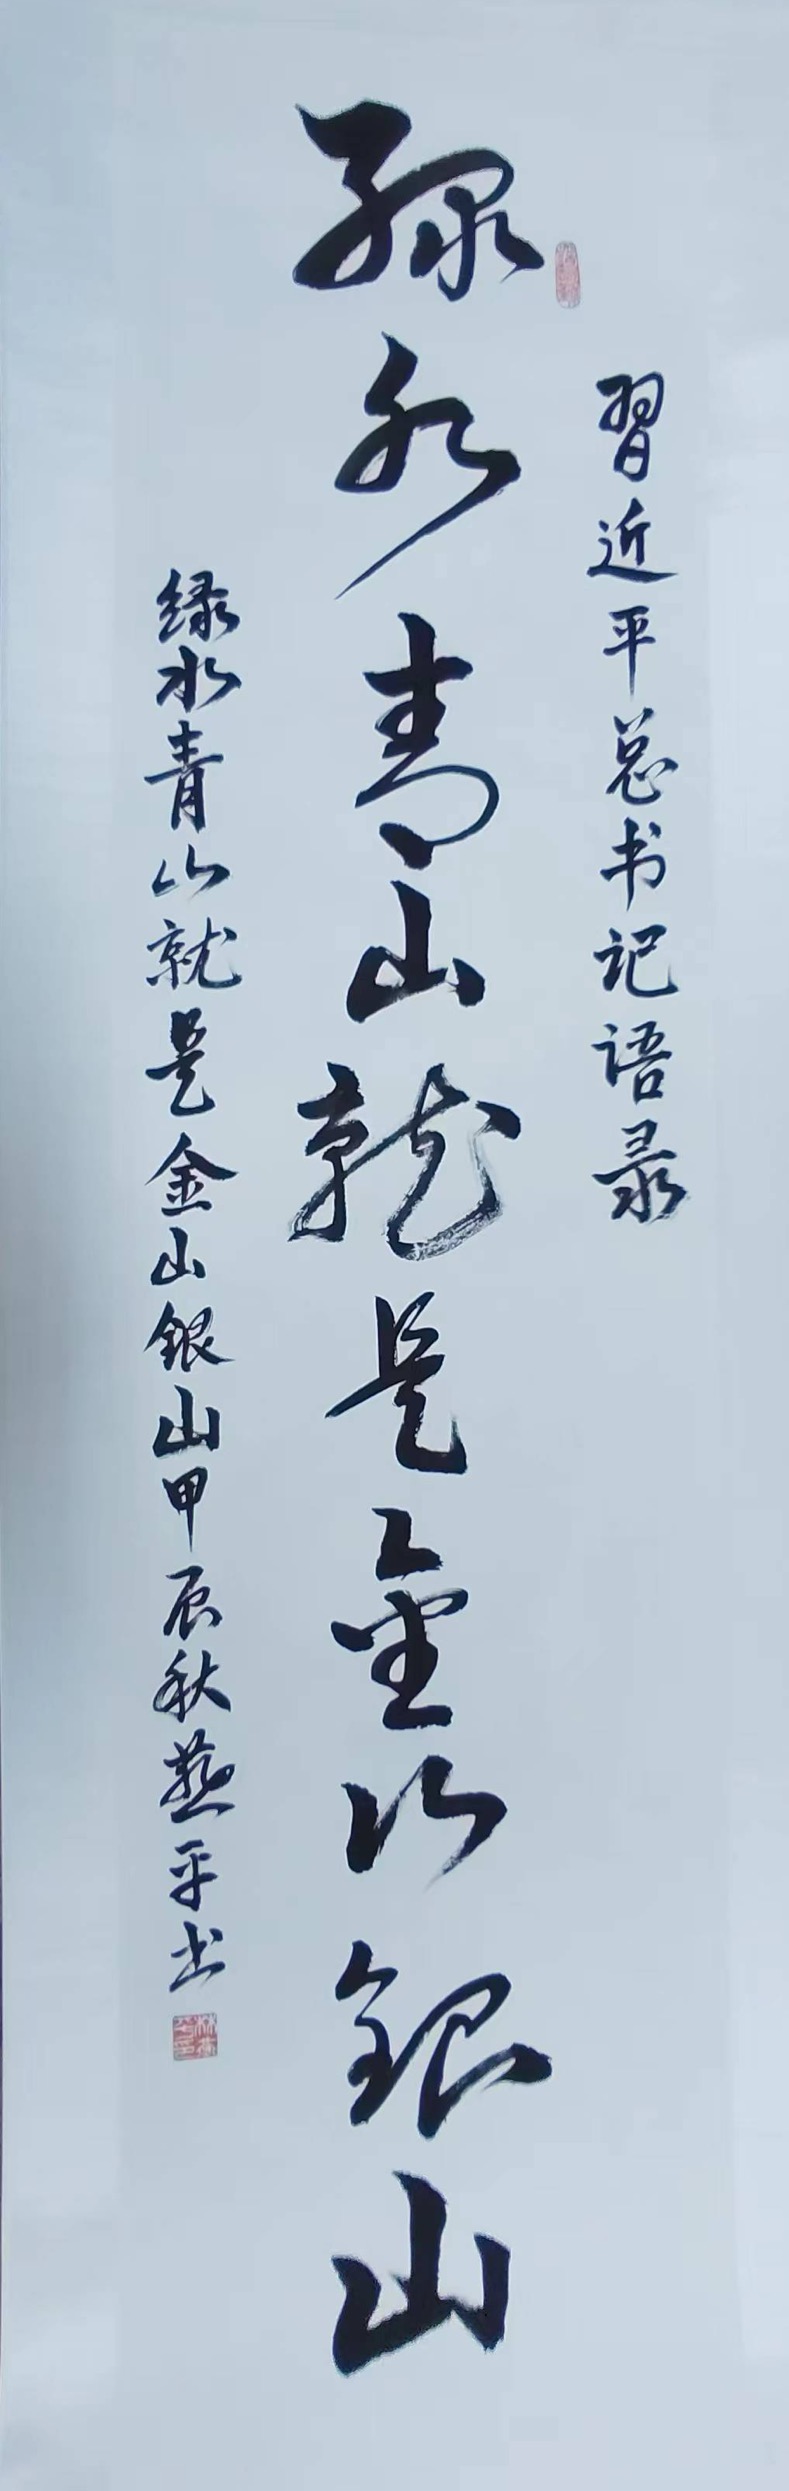 習近平总书记语录
绿水青山就是金山银山
绿水青山就是金山銀山甲辰秋燕平书